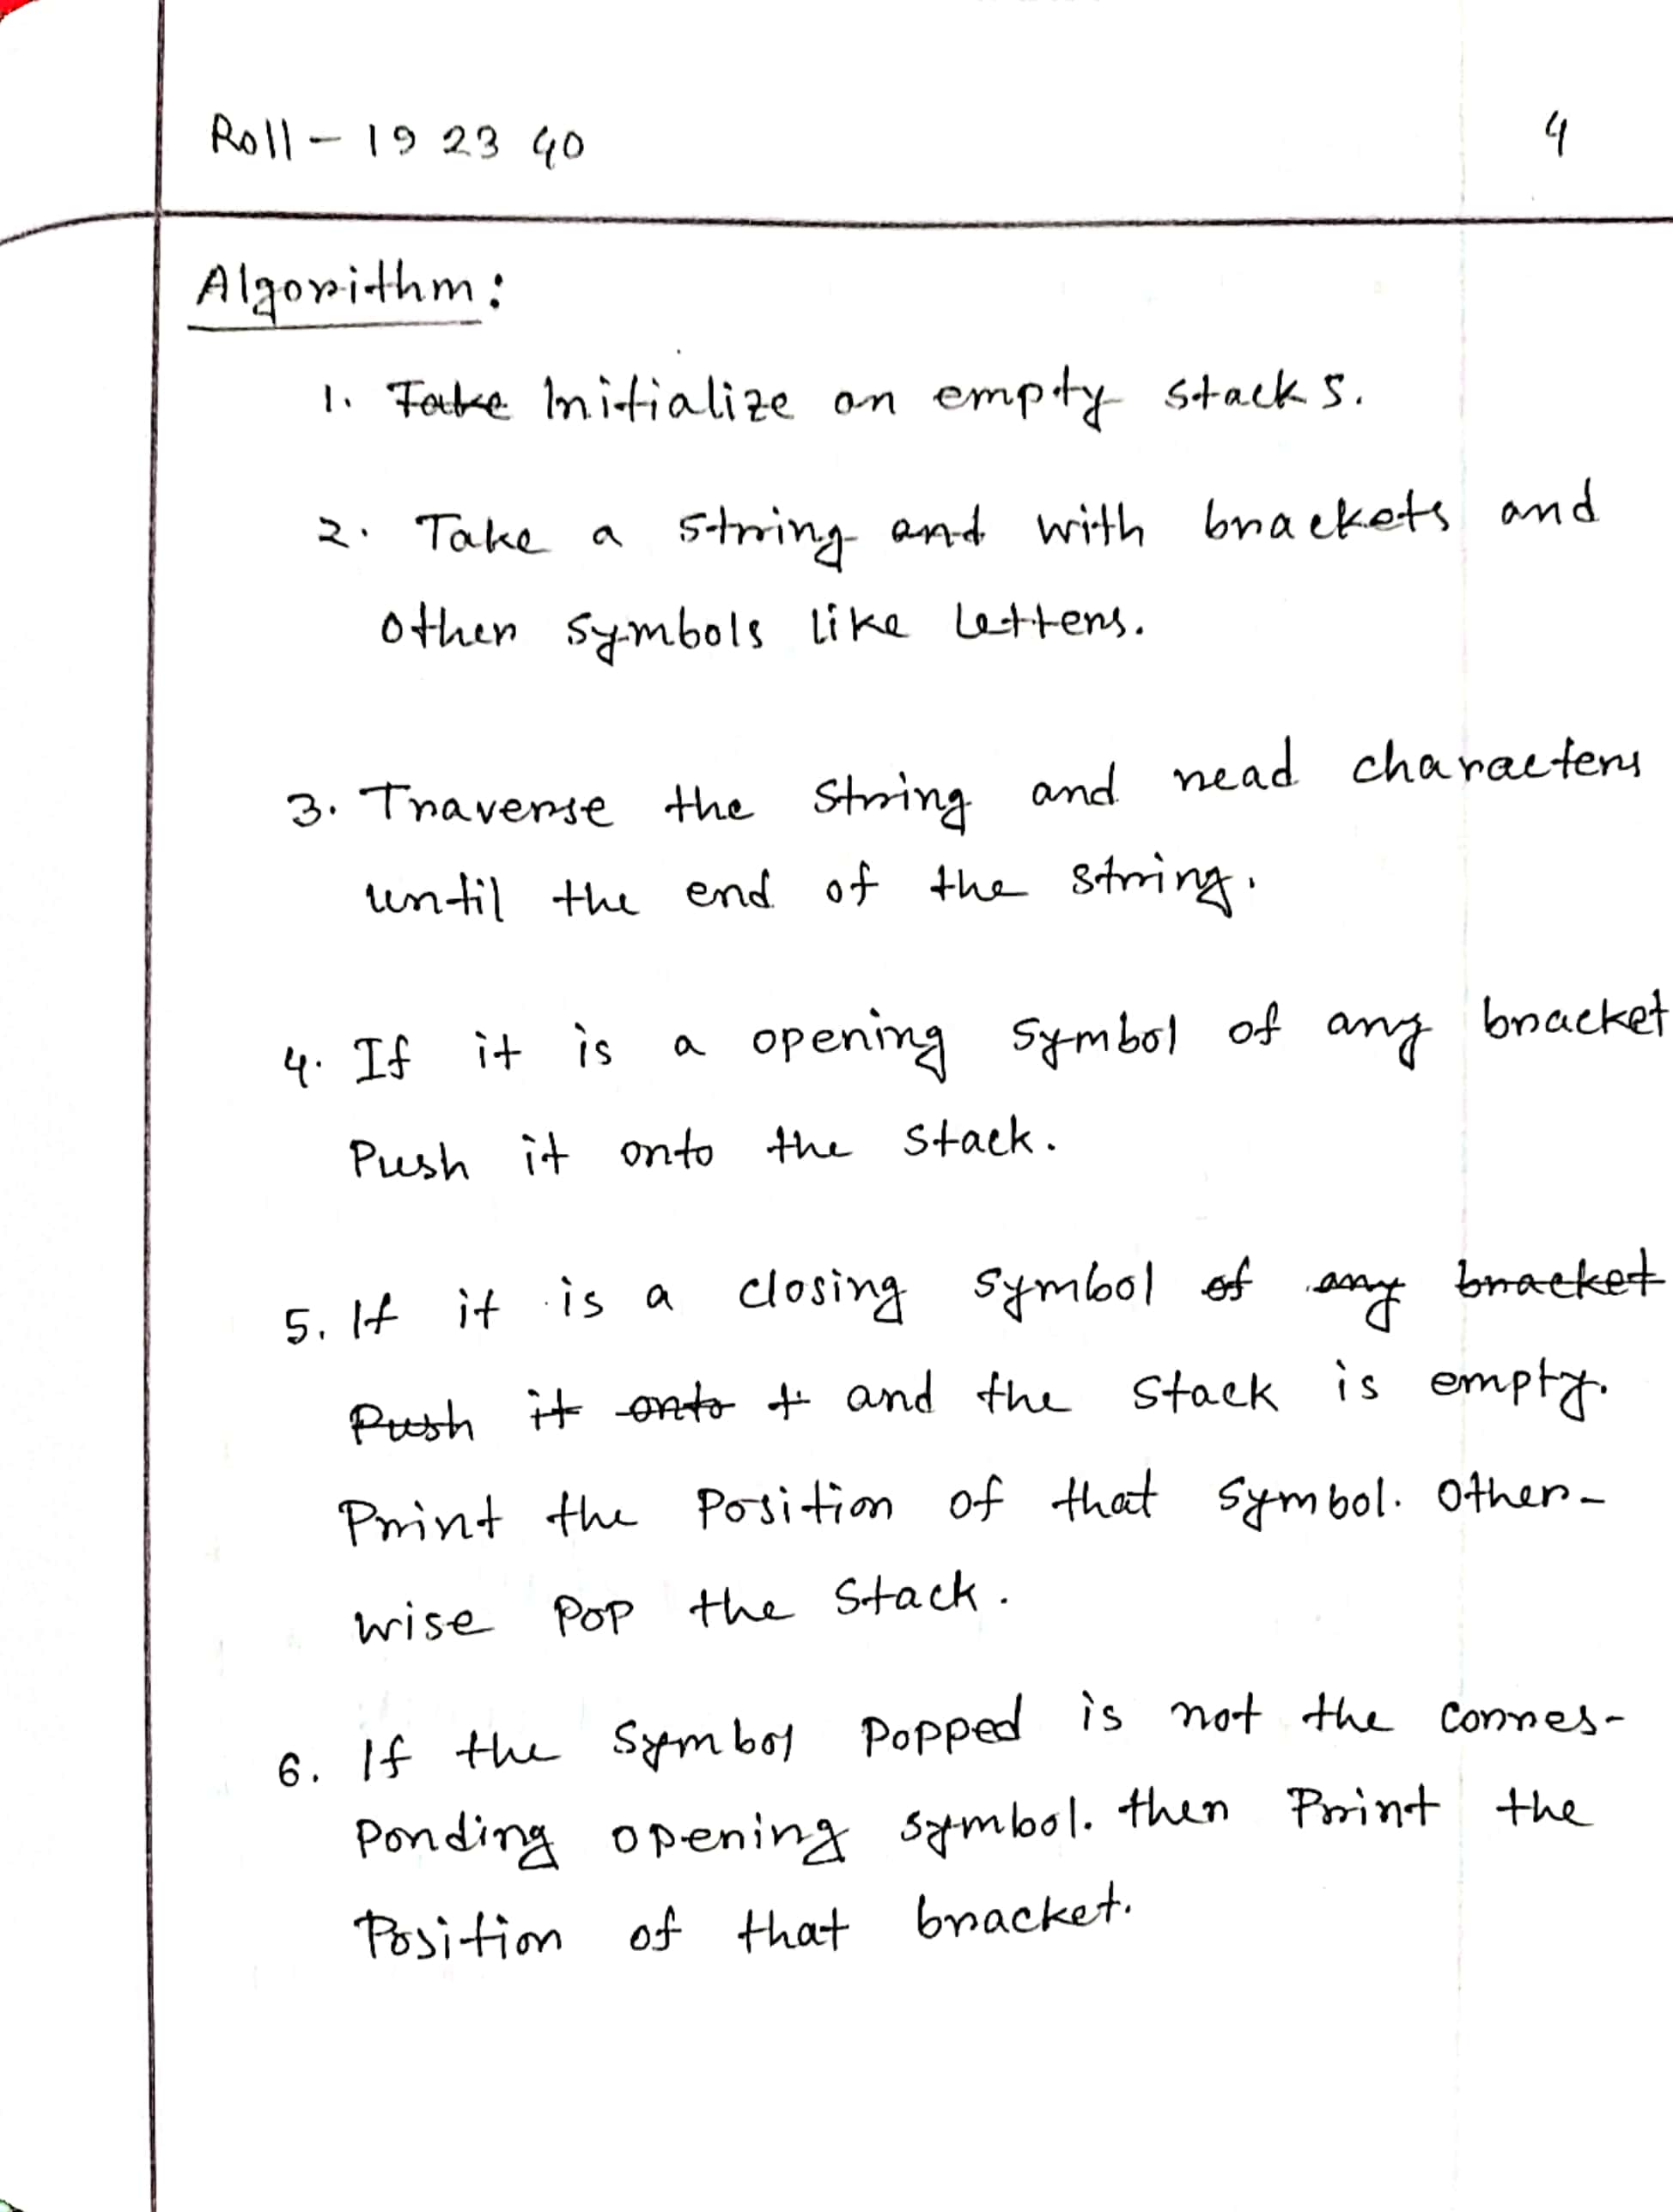 Roll - 19 23 40
4
Algorithm:
1. Take Initialize an empty stack S.
2. Take a string and with brackets and
other symbols like letters.
3. Traverse the string and read characters
until the end of the string.
4. If it is a opening symbol of any bracket
Push it onto the stack.
5. If it is a closing symbol of any bracket
Push it onto t and the stack is empty.
Print the Position of that symbol. Other-
wise Pop the stack.
6. If the symbol Popped is not the corres-
Ponding opening symbol. then Print the
Position of that bracket.